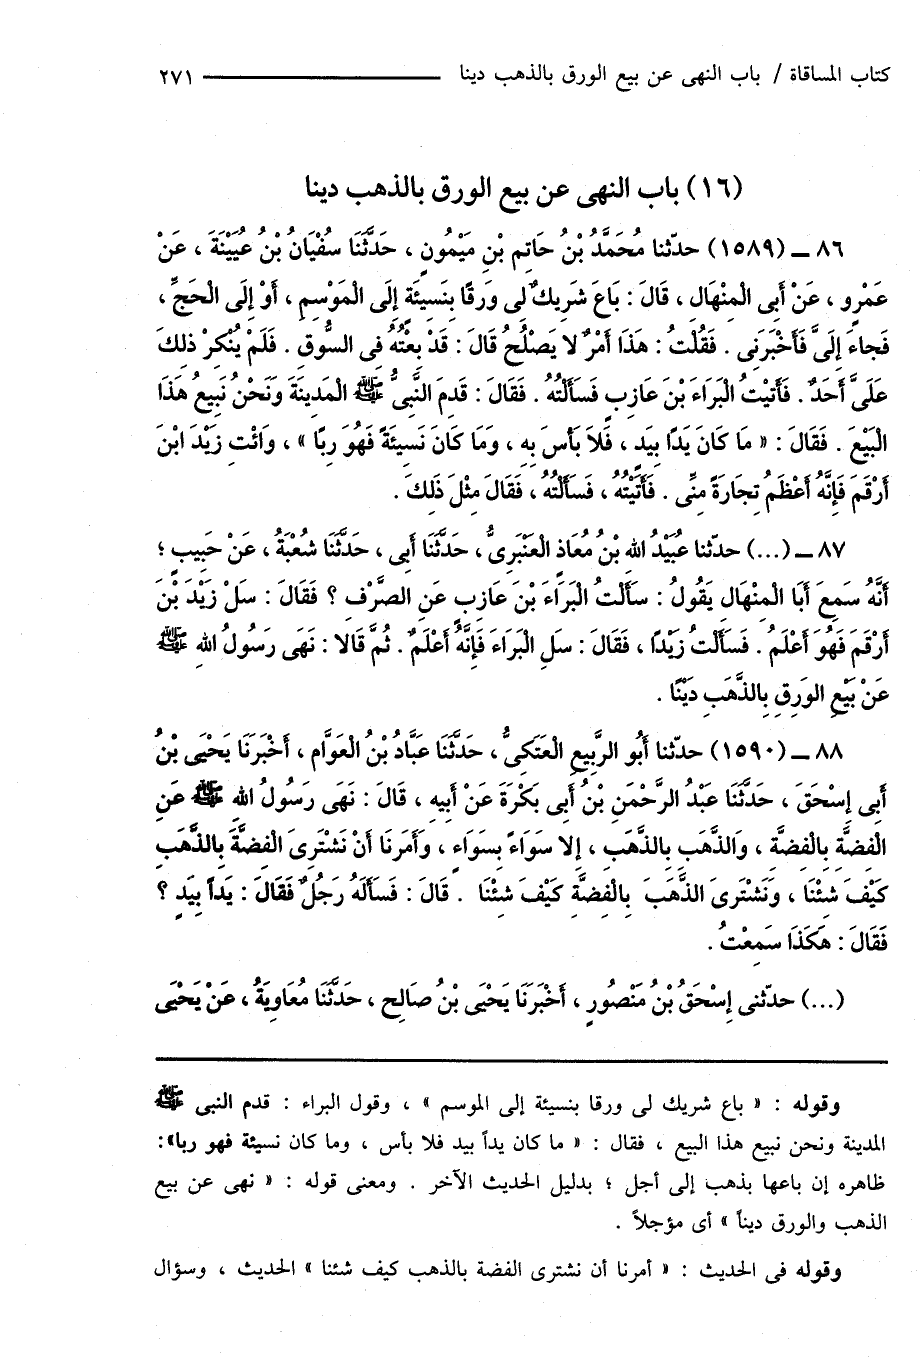 كتاب المساقاة / باب النهى عن بيع الورق بالذهب دينا ٢٧١
(١٦) باب النهى عن بيع الورق بالذهب دينا
٨٦ ــ (١٥٨٩) حدّثنا مُحَمَّدُ بْنُ حَاتِمِ بْنِ مَيْمُونٍ ، حَدَّثَنَا سُفْيَانُ بْنُ عُيَيْنَةَ ، عَنْ
عَمْرٍو ، عَنْ أَبِى الْمِنْهَالِ ، قَالَ : بَاعَ شَرِيكٌ لِى وَرِقًا بِنَسِيئَةٍ إِلَى الْمَوْسِمِ ، أَوْ إِلَى الْحَجِّ ،
فَجاءَ إِلَىَّ فَأَخْبَرَنِى . فَقُلْتُ : هَذَا أَمْرٌ لا يَصْلُحُ قَالَ : قَدْ بِعْتُهُ فِى السُّوقِ . فَلَمْ يُنْكِرْ ذلِكَ
عَلَىَّ أَحَدٌ . فَأَتيْتُ الْبَرَاءَ بْنَ عَازِبٍ فَسَأَلْتُهُ . فَقَالَ : قَدِمَ النَّبِىُّ ﷺ الْمَدِينَةَ وَنَحْنُ نَبِيعُ هذَا
الْبَيْعَ . فَقَالَ : « مَا كَانَ يَدًا بِيَدٍ ، فَلاَ بَأْسَ بِهِ ، وَمَا كَانَ نَسِيئَةً فَهُوَ رِبًا » ، وَائْتِ زَيْدَ ابْنَ
أَرْقَمَ فَإِنَّهُ أَعْظَمُ تِجَارَةً مِنِّى . فَأَتَيْتُهُ ، فَسَأَلْتُهُ ، فَقَالَ مِثْلَ ذَلِكَ .
٨٧ ــ (...) حدّثنا عُبَيْدُ اللهِ بْنُ مُعَاذٍ الْعَنْبَرِىُّ ، حَدَّثَنَا أَبِى ، حَدَّثَنَا شُعْبَةُ ، عَنْ حَبِيبٍ ؛
أَنَّهُ سَمِعَ أَبَا الْمِنْهَالِ يَقُولُ : سَأَلْتُ الْبَرَاءَ بْنَ عَازِبٍ عَنِ الصَّرْفِ ؟ فَقَالَ : سَلْ زَيْدَ بْنَ
أَرْقَمَ فَهُوَ أَعْلَمُ . فَسَأَلْتُ زَيْدًا ، فَقَالَ : سَلِ الْبَرَاءَ فَإِنَّهُ أَعْلَمُ . ثُمَّ قَالا : نَهَى رَسُولُ اللهِ ﷺ
عَنْ بَيْعِ الوَرِقِ بِالذَّهَبِ دَيْنًا .
٨٨ ــ (١٥٩٠) حدّثنا أَبُو الرَّبِيعِ الْعَتَكِىُّ ، حَدَّثَنَا عَبَّادُ بْنُ الْعَوَّامِ ، أَخْبَرَنَا يَحْيَى بْنُ
أَبِى إِسْحَقَ ، حَدَّثَنَا عَبْدُ الرَّحْمَنِ بْنُ أَبِى بَكْرَةَ عَنْ أَبِيهِ ، قَالَ : نَهَى رَسُولُ اللهِ ﷺ عَنِ
الْفِضَّةِ بِالْفِضَّةِ ، وَالذَّهَبِ بِالذَّهَبِ ، إِلا سَوَاءً بِسَوَاءٍ ، وَأَمَرَنَا أَنْ نَشْتَرِىَ الْفِضَّةَ بِالذَّهَبِ
كَيْفَ شِئْنَا ، وَنَشْتَرِىَ الذَّهَبَ بِالْفِضَّةِ كَيْفَ شِئْنَا . قَالَ : فَسَأَلَهُ رَجُلٌ فَقَالَ : يَداً بِيَدٍ ؟
فَقَالَ : هَكَذَا سَمِعْتُ .
(...) حدّثنى إِسْحَقُ بْنُ مَنْصُورٍ ، أَخْبَرَنَا يَحْيَى بْنُ صَالِحٍ ، حَدَّثَنَا مُعَاوِيَةُ ، عَنْ يَحْيَى
وقوله : « باع شريك لى ورقا بنسيئة إلى الموسم » ، وقول البراء : قدم النبى ﷺ
المدينة ونحن نبيع هذا البيع ، فقال : « ما كان يداً بيد فلا بأس ، وما كان نسيئة فهو ربا»:
ظاهره إن باعها بذهب إلى أجل ؛ بدليل الحديث الآخر . ومعنى قوله : « نهى عن بيع
الذهب والورق ديناً » أى مؤجلاً .
وقوله فى الحديث : « أمرنا أن نشترى الفضة بالذهب كيف شئنا » الحديث ، وسؤال